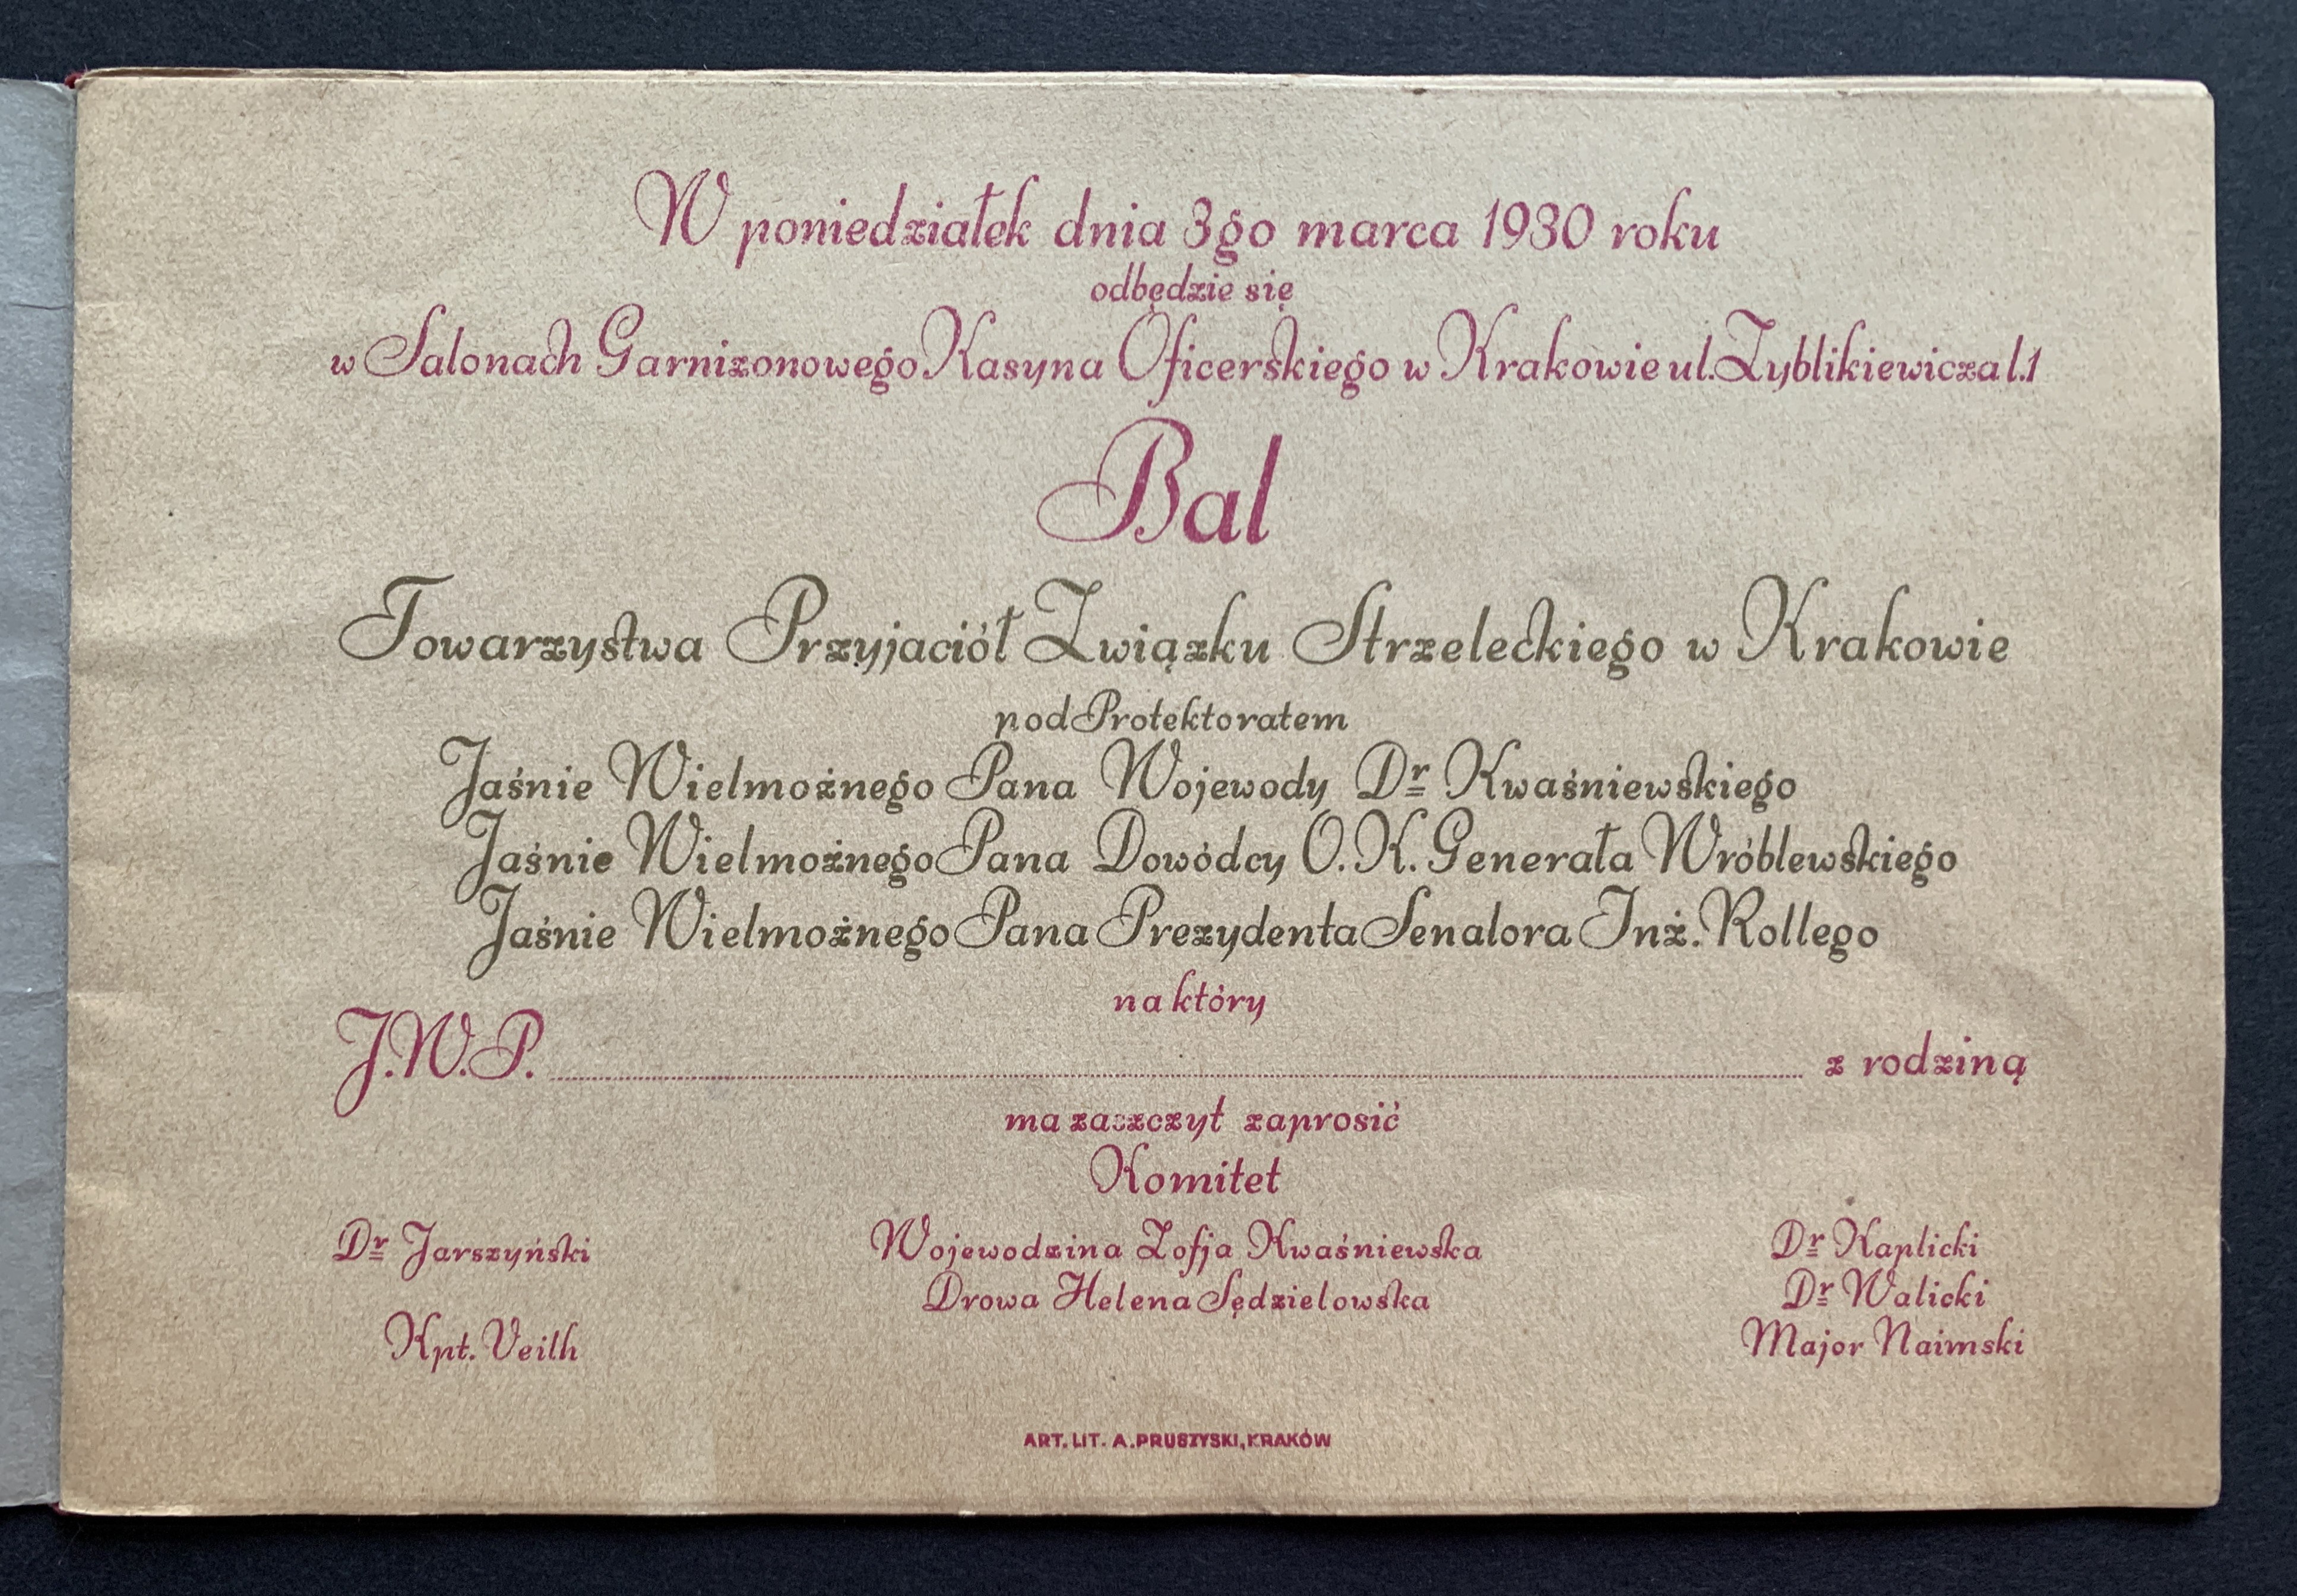 W poniedziałek dnia 3go marca 1930 roku
odbędzie się
w Salonach Garnizonowego Kasyna Oficerskiego w Krakowie ul. Zyblikiewicza l.1
Bal
Towarzystwa Przyjaciół Związku Strzeleckiego w Krakowie
pod Protektoratem
Jaśnie Wielmożnego Pana Wojewody Dr Kwaśniewskiego
Jaśnie Wielmożnego Pana Dowódcy O.K. Generała Wróblewskiego
Jaśnie Wielmożnego Pana Prezydenta Senalora Inż. Rollego
na który
J.W.P. z rodziną
ma zaszczyt zaprosić
Komitet
Dr Jarszyński
Kpt. Veilh
Wojewodzina Zofja Kwaśniewska
Drowa Helena Sędzielowska
Dr Kaplicki
Dr Walicki
Major Naimski
ART. LIT. A. PRUSZYSKI, KRAKÓW